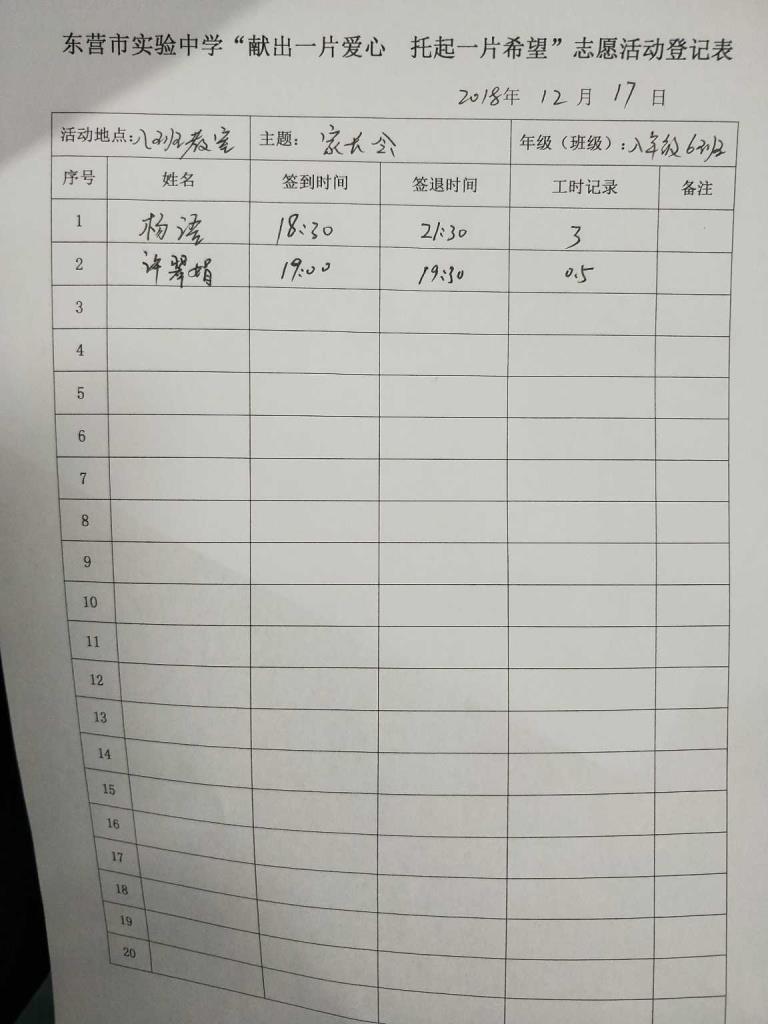 东营市实验中学“献出一片爱心 托起一片希望”志愿活动登记表
2018年 12月 17日
活动地点:八班教室 主题: 家长会 年级（班级）:八年级6班
序号 姓名 签到时间 签退时间 工时记录 备注
1 杨语 18:30 21:30 3
2 许翠娟 19:00 19:30 0.5
3
4
5
6
7
8
9
10
11
12
13
14
15
16
17
18
19
20